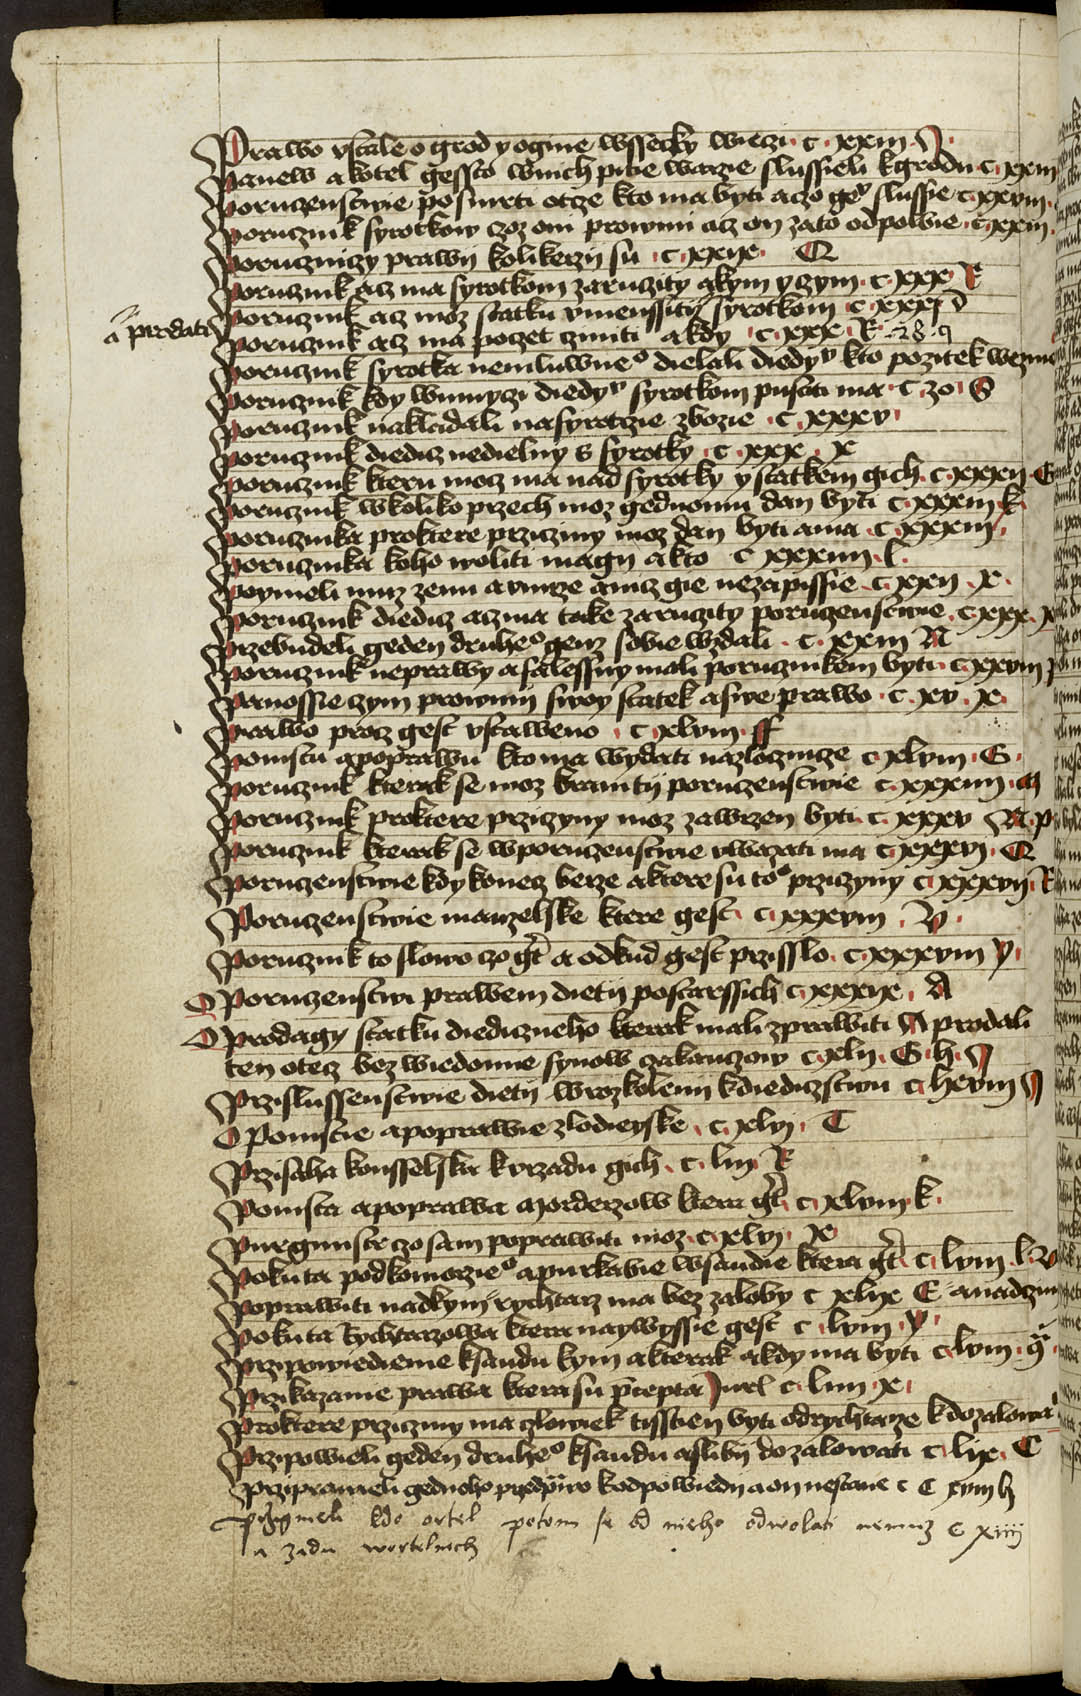 Prawo vstale o grod y ogine wssecky wieczi · c · xxiii · J ·
Panew a kotel gessto wnich piwe warzie slussieli kgrodu c xxiii
Poruczenstwie po smrti otcze kto ma byti a czo geº slussie c xxviii ·
Porucznik syrotkow czoz oni prowini acz on zato odpowie · c xxiii ·
Poruczniczy prawij kolikerzij su · c · xxix · Q
Porucznik acz ma syrotkom zaruczity a kym y czym · c xxx R
Porucznik acz moz statku vmenssitij syrotkom c xxxj S
a prodati
Porucznik acz ma poczet cziniti a kdy · c xxx · R · 28 · q
Porucznik syrotka nemluwneº dielali diedyº kto pozitek wezme
Porucznik kdy winniczi diedyº syrotkom pusati ma · c 20 · S
Porucznik nakladali na syrotczie zbozie · c xxxv ·
Porucznik diedicz nedielny s syrotky · c xxx · X
Porucznik kteru mocz ma nad syrotky y statkem gich · c xxxii · G
Porucznik w koliko przech moz gednomu dan byti c xxxiii k
Porucznika proktere przicziny moz dan byti a ma · c xxxiii ·
Porucznika koho woliti magij a kto c xxxiiii · l ·
Poymeli muz zenu a vmrze a nicz gie nezapissie · c xxii · X ·
Porucznik diedicz acz ma take zaruczity poruczenstwie · c xxx · X
Przebudeli geden druheº gemz sobie wzdali · c · xxiii N
Porucznik neprawy a falessny mali porucznikem byti · c xxviii
Panossie czym prowini swoy statek a swe prawo · c · xv · X ·
Prawo procz gest vstaweno · c xlviii · ff
Pomstu a poprawu kto ma wydati nazlocznicze c xlviii · G ·
Porucznik kterak se moz branitij poruczenstwie c xxxiiii · M
Porucznik proktere prziczyny moz zawrzen byti · c · xxxv N · P
Porucznik kterak se w poruczenstwie vwazati ma c xxxvi · Q
Poruczenstwie kdy konecz berze a ktere su toº prziczyny c xxxvii · R
Poruczenstwie manzelske ktere gest · c xxxviii · V ·
Porucznik to slowo czo gt a odkud gest przisslo · c xxxviii y ·
O Poruczenstwi prawem dietij postarssich c xxxix · A
O Prodagy statku diediczneho kterak mali zprawiti N prodali
ten otecz bez wiedomie synow zakanczow c xlii · G · h · J
Przislussenstwie dietij w rozkoleni k diediczstwu c heviii J
O Pomstie a poprawie zlodieyske · c · xlvi · T
Przisaha konsselska k vrzadu gich · c · liii R
Pomsta a poprawa morderzow ktera gt c xlviii k ·
Purgmistr czo sam poprawiti moz · c xlvi · X ·
Pokuta podkomorzieº a purkrabie w saudie ktera gt c lviii l · V
Poprawiti nadkym rychtarz ma bez zaloby c xlix E a nadczim
Pokuta Rychtarzowa ktera naywyssie gest c lviii · y ·
Przipowiedienie k saudu kym a kterak a kdy ma byti c lviii · q
Przikazanie prawa ktera su pcepta Juris c liiii · X ·
Proktere prziczyny ma czlowiek tissten byti od rychtarze k dozalowa
Przipowieli geden druheº k saudu a slibij dozalowati c lix · C
Przipraweli gednoho przedpiro k odpowiedi a on nestane c C xviii h
Przigmeli kdo ortel potom se od nieho odwolati nemuz c xiiii
a zadu wortelnich